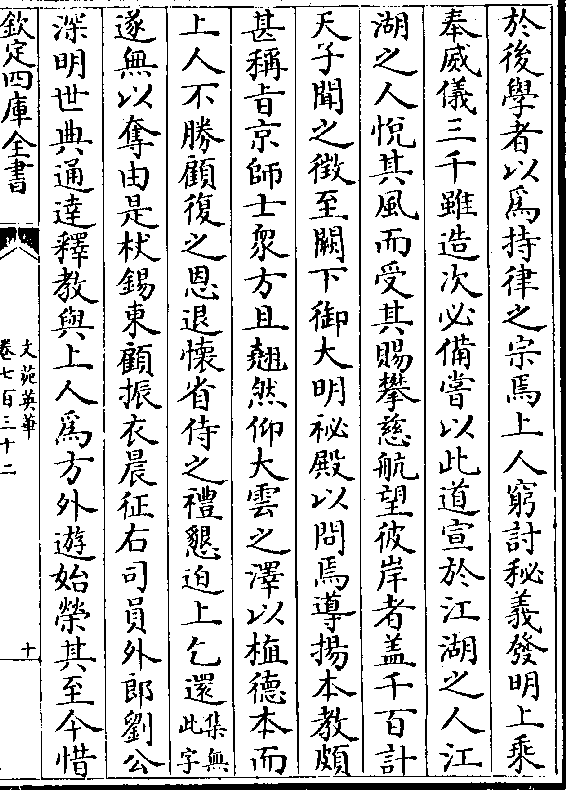 於後學者以為持律之宗焉上人窮討秘義發明上乘
奉威儀三千雖造次必備嘗以此道宣於江湖之人江
湖之人悅其風而受其賜攀慈航望彼岸者盖千百計
天子聞之徵至闕下御大明祕殿以問焉導揚本教頗
甚稱旨京師士衆方且翹然仰大雲之澤以植德本而
上人不勝顧復之恩退懷省侍之禮懇迫上乞還集無此字
遂無以奪由是杖錫東顧振衣晨征右司員外郎劉公
深明世典通達釋教與上人為方外遊始榮其至今惜
欽定四庫全書
文苑英華
卷七百三十二
十